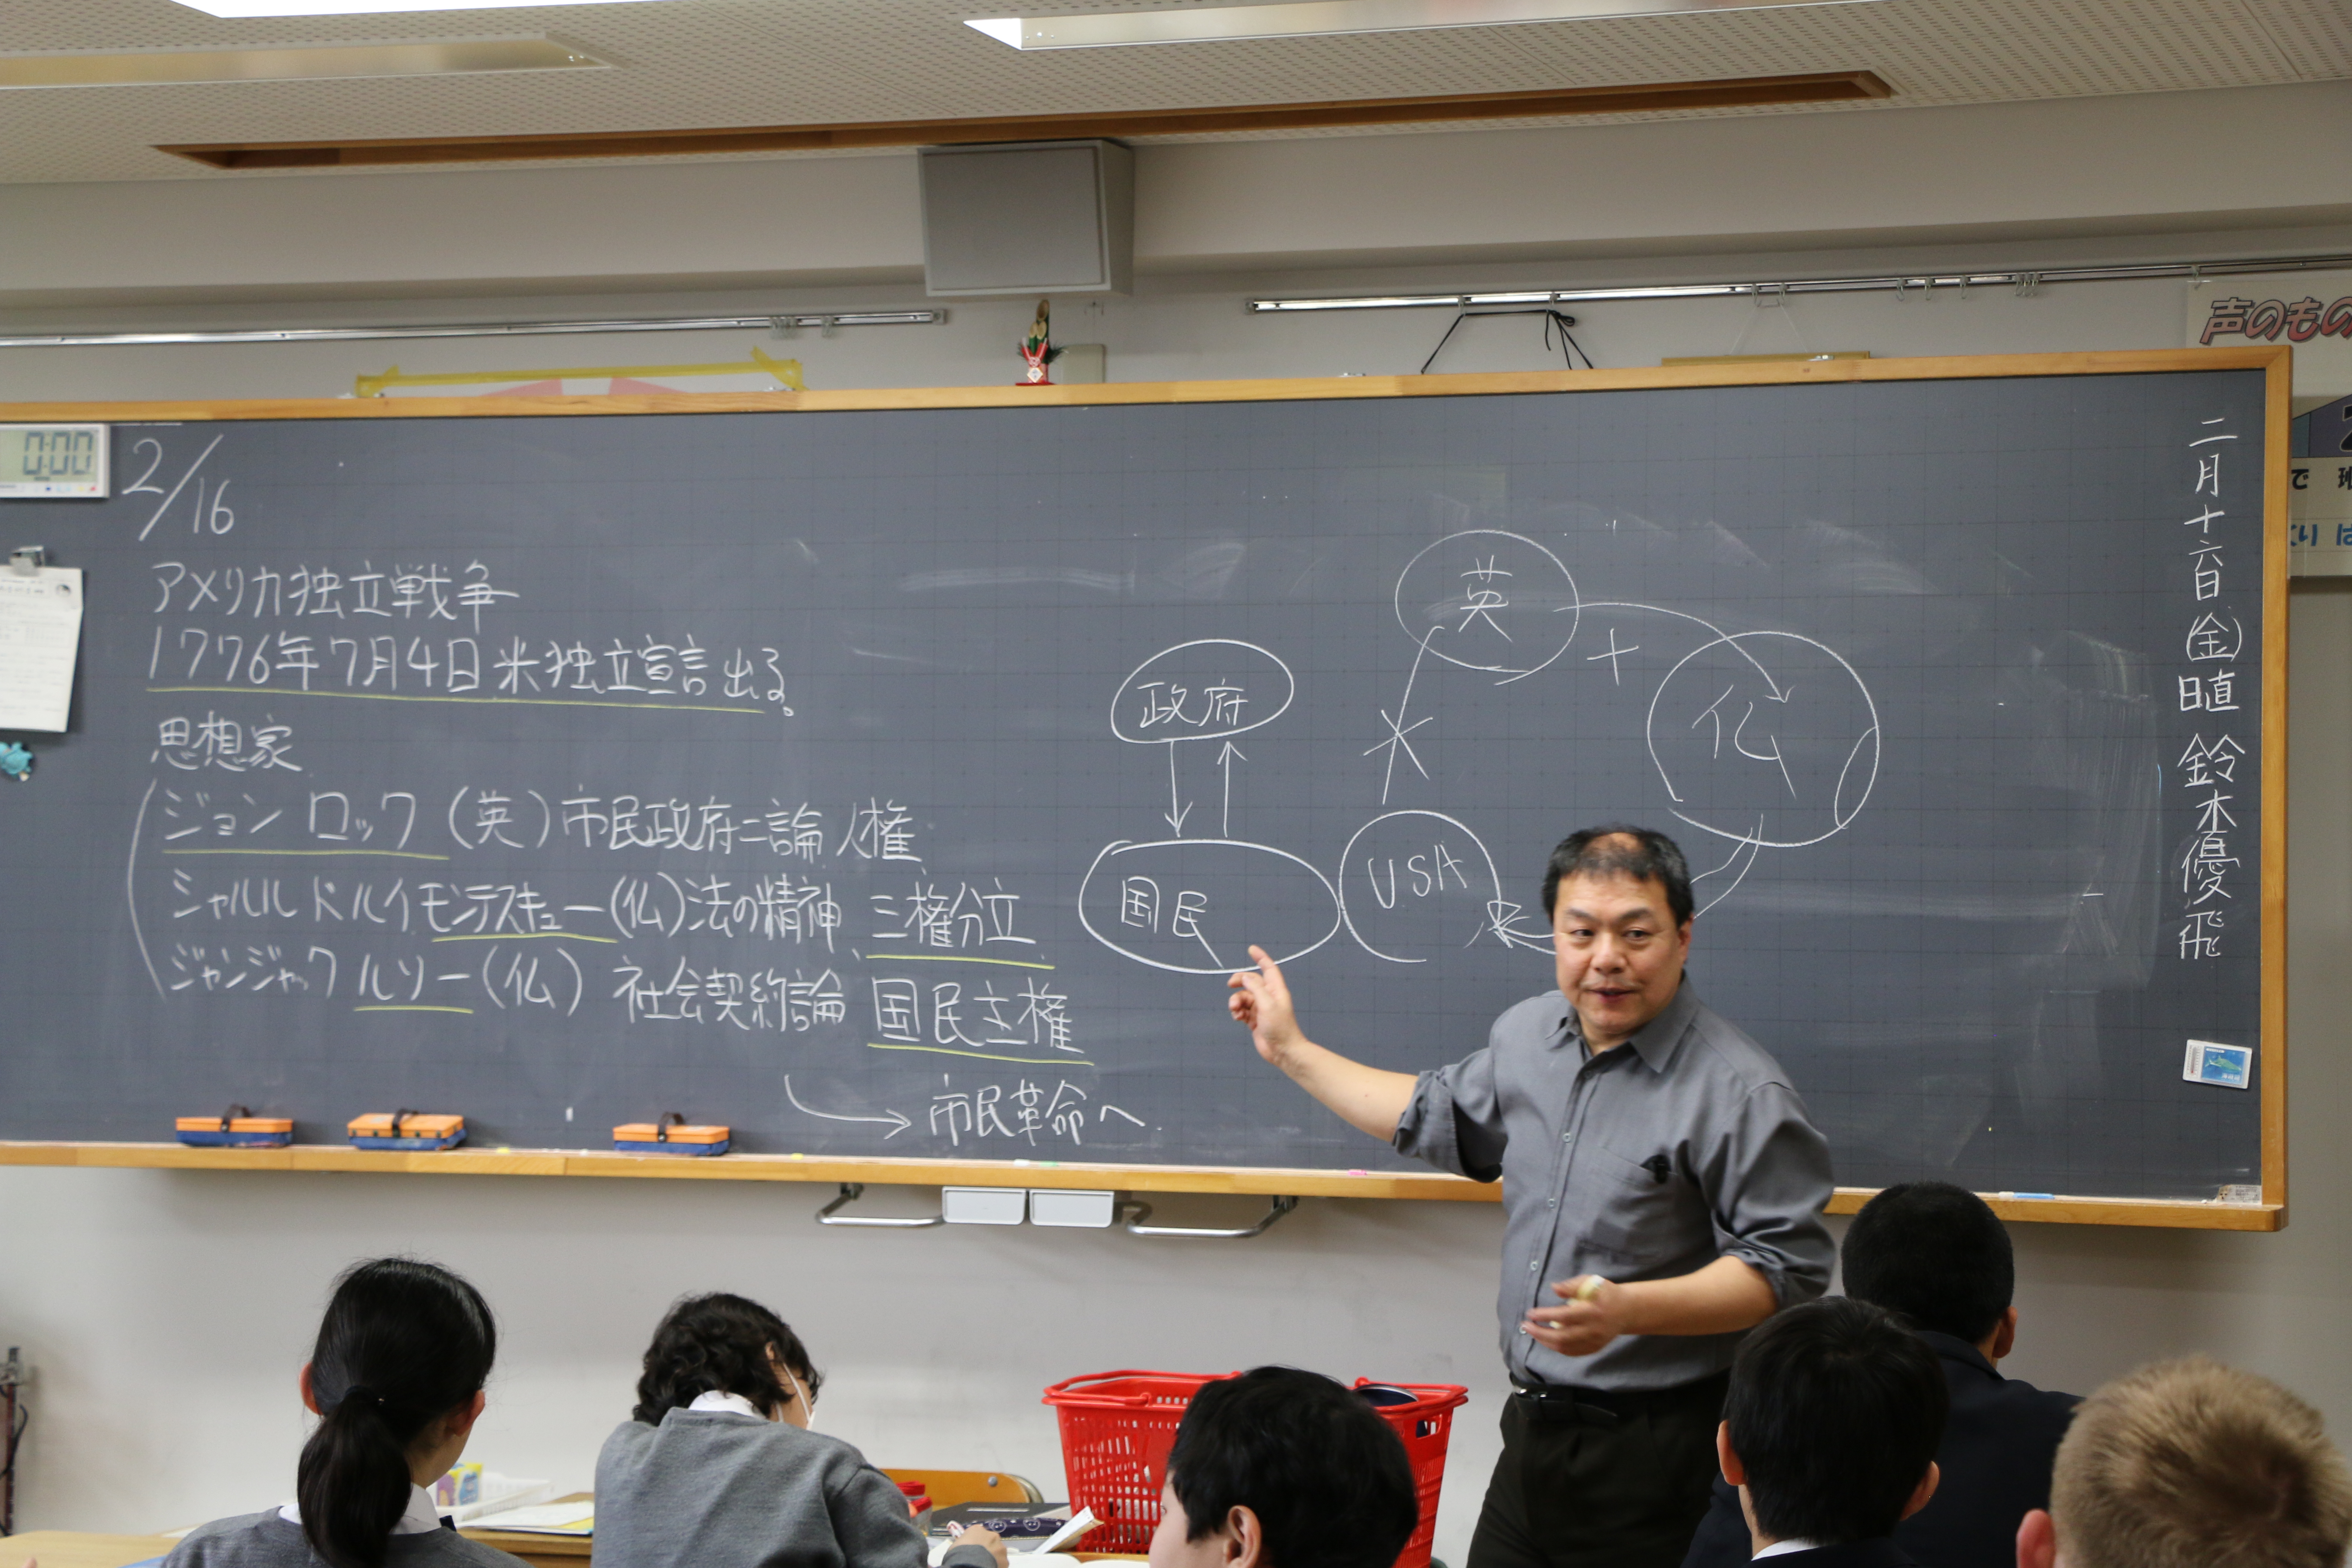 0:00
2/16
アメリカ独立戦争
1776年7月4日米独立宣言出る。
思想家
ジョン ロック(英)市民政府二論 人権
シャルル ド ルイ モンテスキュー(仏)法の精神 三権分立
ジャンジャック ルソー(仏) 社会契約論 国民主権
市民革命へ
政府
国民
英
+
仏
USA
二月十六日(金)
日直 鈴木優飛
声のもの
で 班
くり は